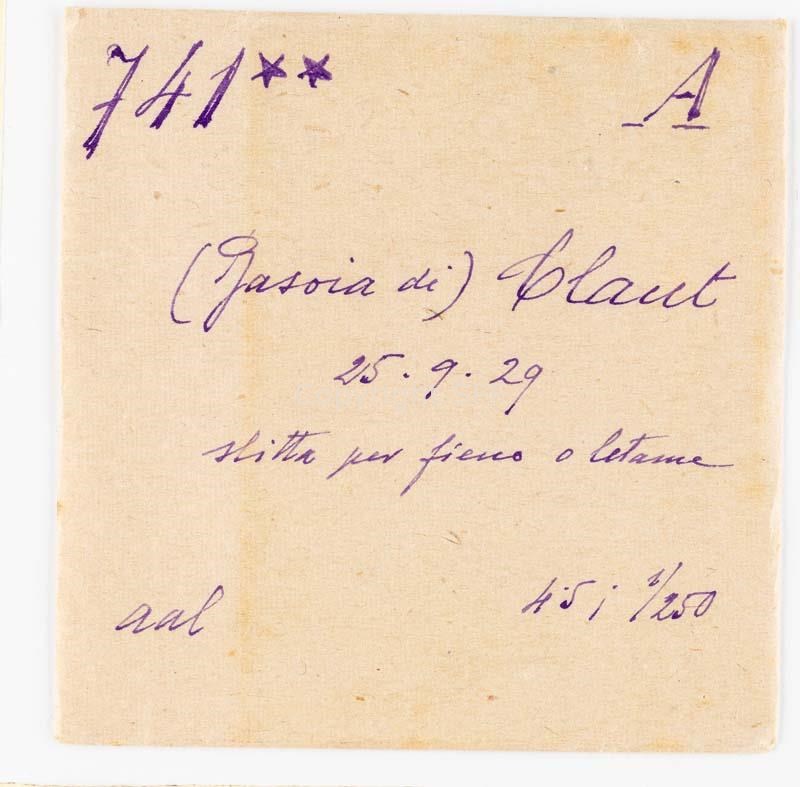 741** A
(Gasoia di) Claut
25.9.29
slitta per fieno o letame
aal 4.5; 1/250